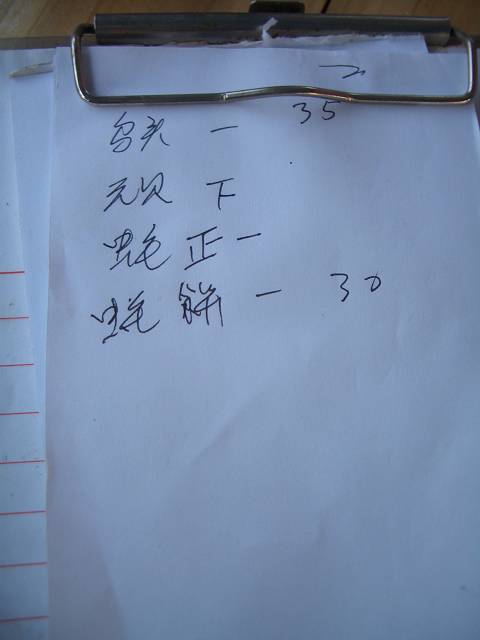 乌头 一 35
元贝 下
蚝 正一
蚝 饼 一 30